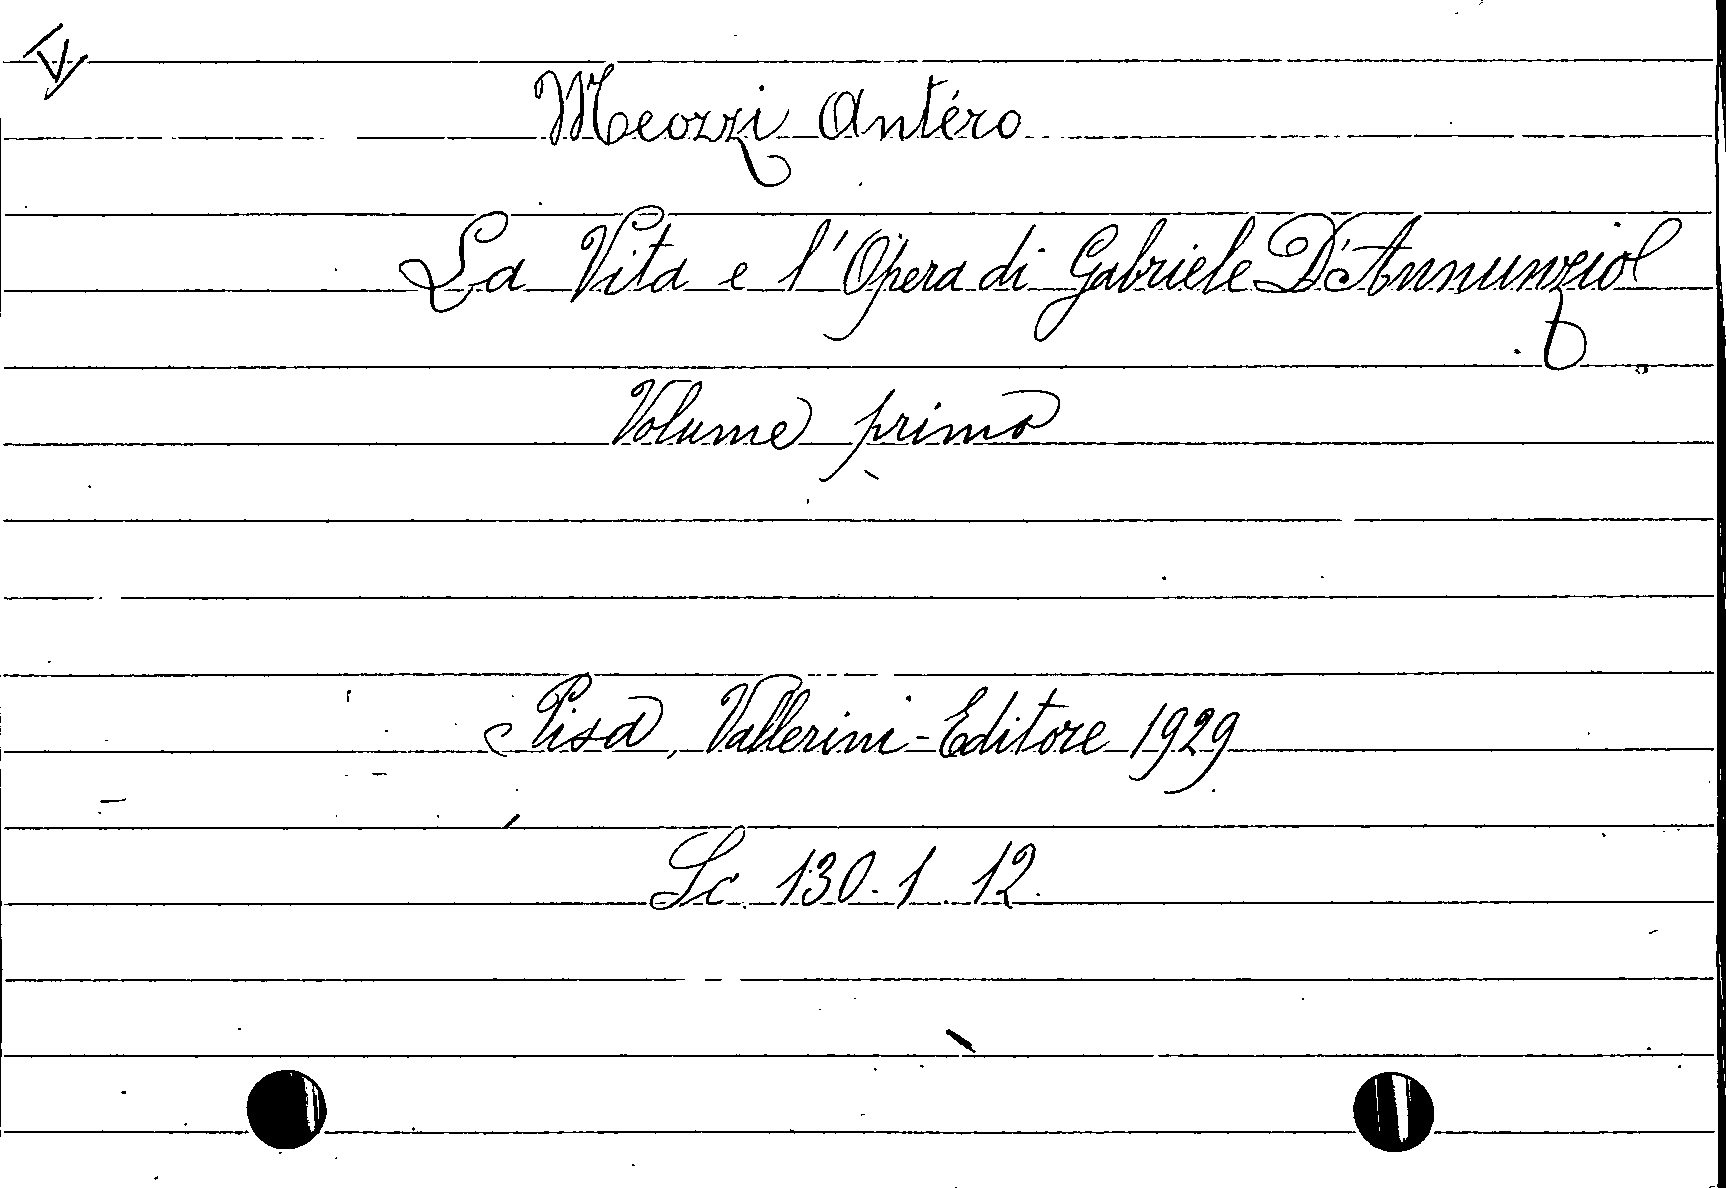 IV
Meozzi Antéro
La Vita e l'Opera di Gabriele D'Annunzio
Volume primo
Pisa, Vallerini-Editore 1929
Sc. 130. 1. 12.